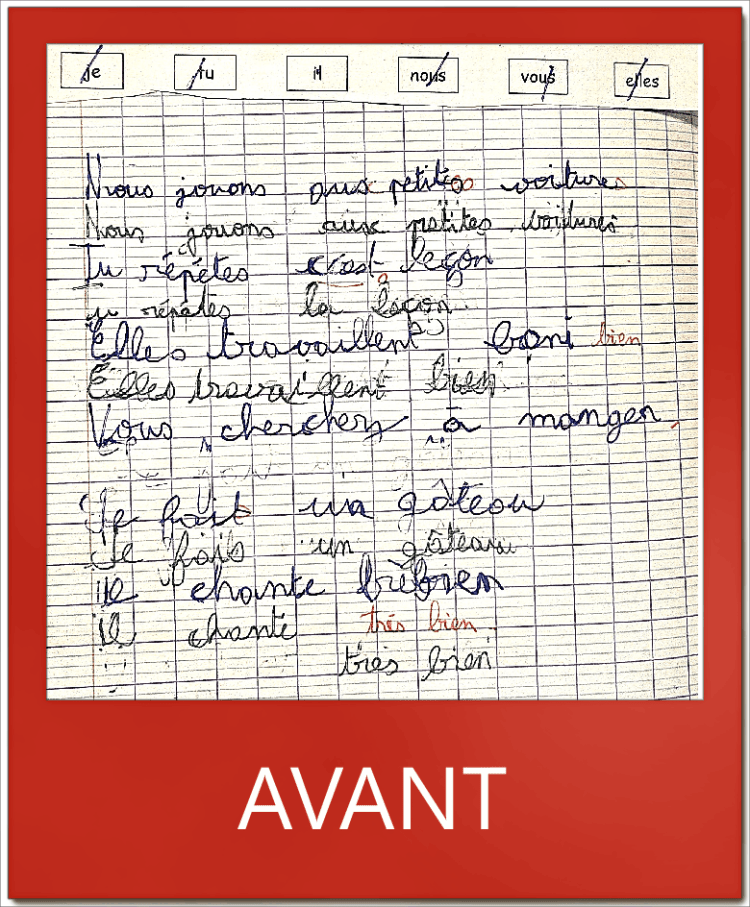 je tu il nous vous elles
Nous jouons aux petites voitures
Nous jouons aux petites voitures
Tu répétes c'est leçon
tu répétes la leçon
Elles travaillent boni bien
Elles travaillent bien
Vous cherchez à manger
Je fait un gâteau
Je fais un gâteau
il chante trèbien
il chante très bien
très bien
AVANT